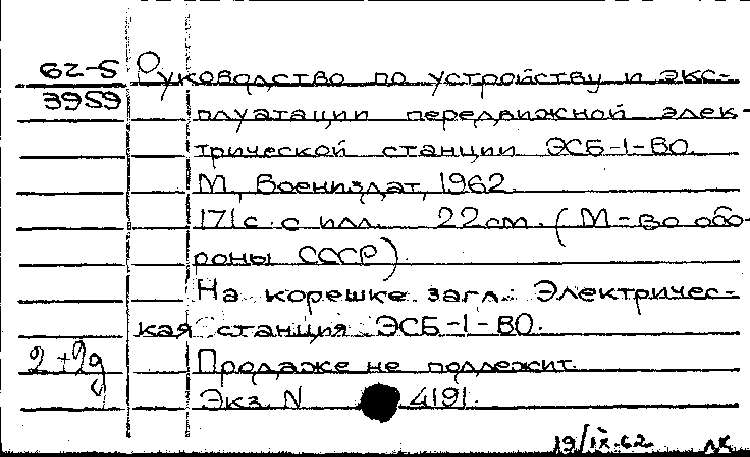 62-5
3959
Руководство по устройству и экс-
плуатации передвижной элек-
трической станции ЭСБ-1-ВО.
М., Воениздат, 1962.
171 с. с илл. 22 см. (М-во обо-
роны СССР).
На корешке загл.: Электричес-
кая станция ЭСБ-1-ВО.
Продаже не подлежит.
Экз. N 4191.
2+2д
19/IX-62 лк